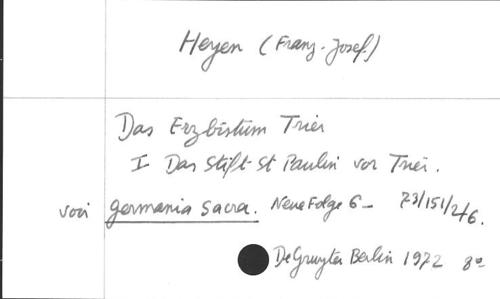 Heyen (Franz-Josef.)
Das Erzbistum Trier
I Das Stift St Paulin vor Trier.
voir Germania Sacra. Neue Folge 6- 73/151/2/6.
De Gruyter Berlin 1972 8º